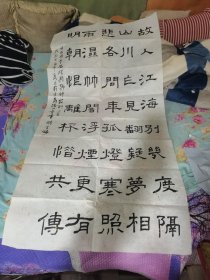 故人江海別幾度隔
山川乍見翻疑夢相
悲各問年孤燈寒照
雨濕竹暗浮煙更有
明朝恨離杯惜共傳